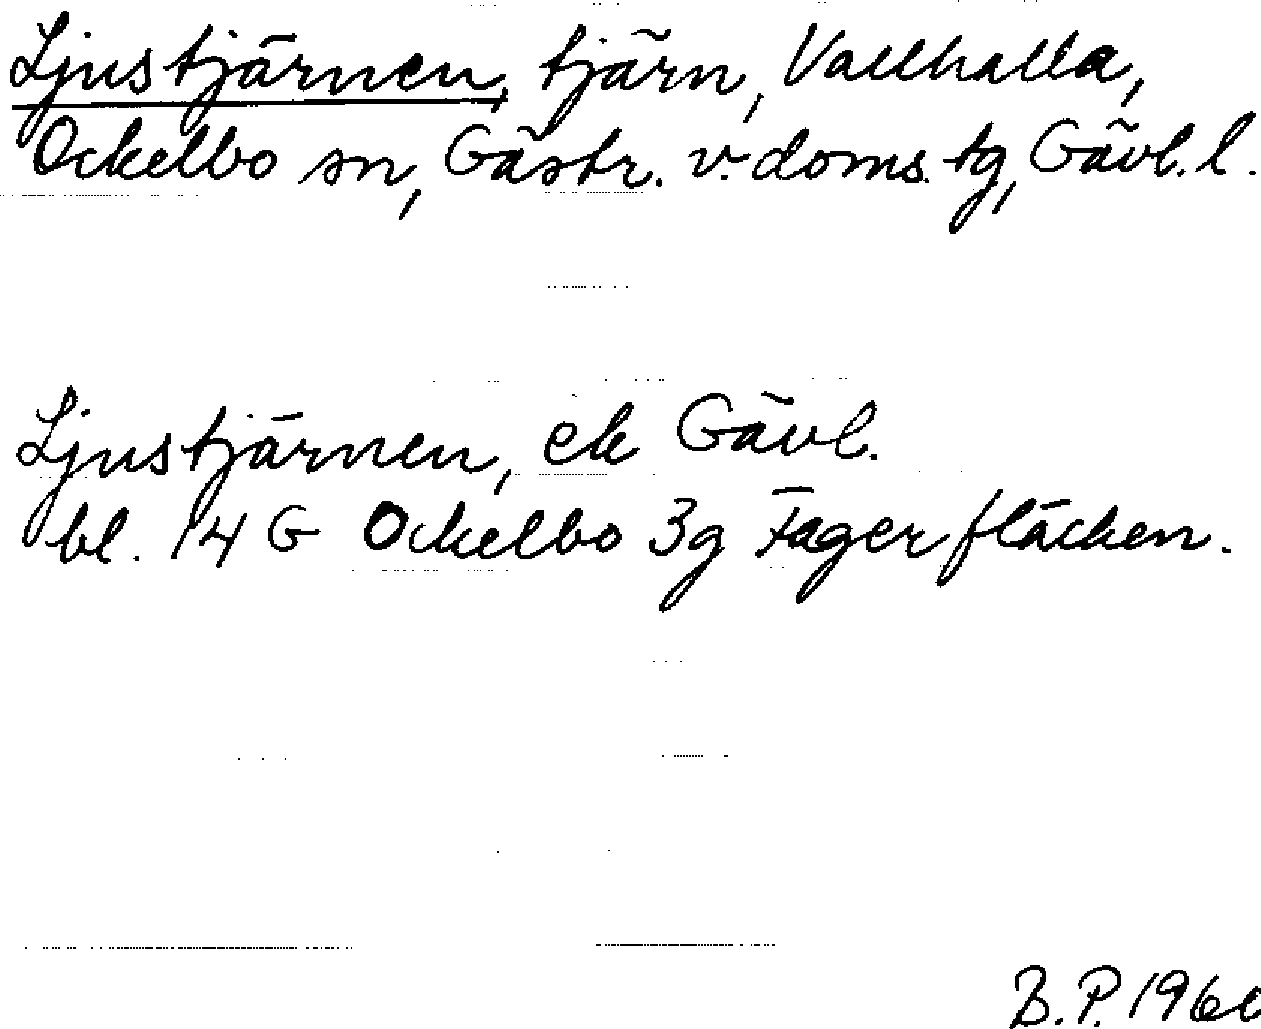 Ljustjärnen, tjärn, Vallhalla,
Ockelbo sn, Gästr. v. doms. tg, Gävl. l.
Ljustjärnen, ek Gävl.
bl. 14 G Ockelbo 3g Fagerfläcken.
B.P.